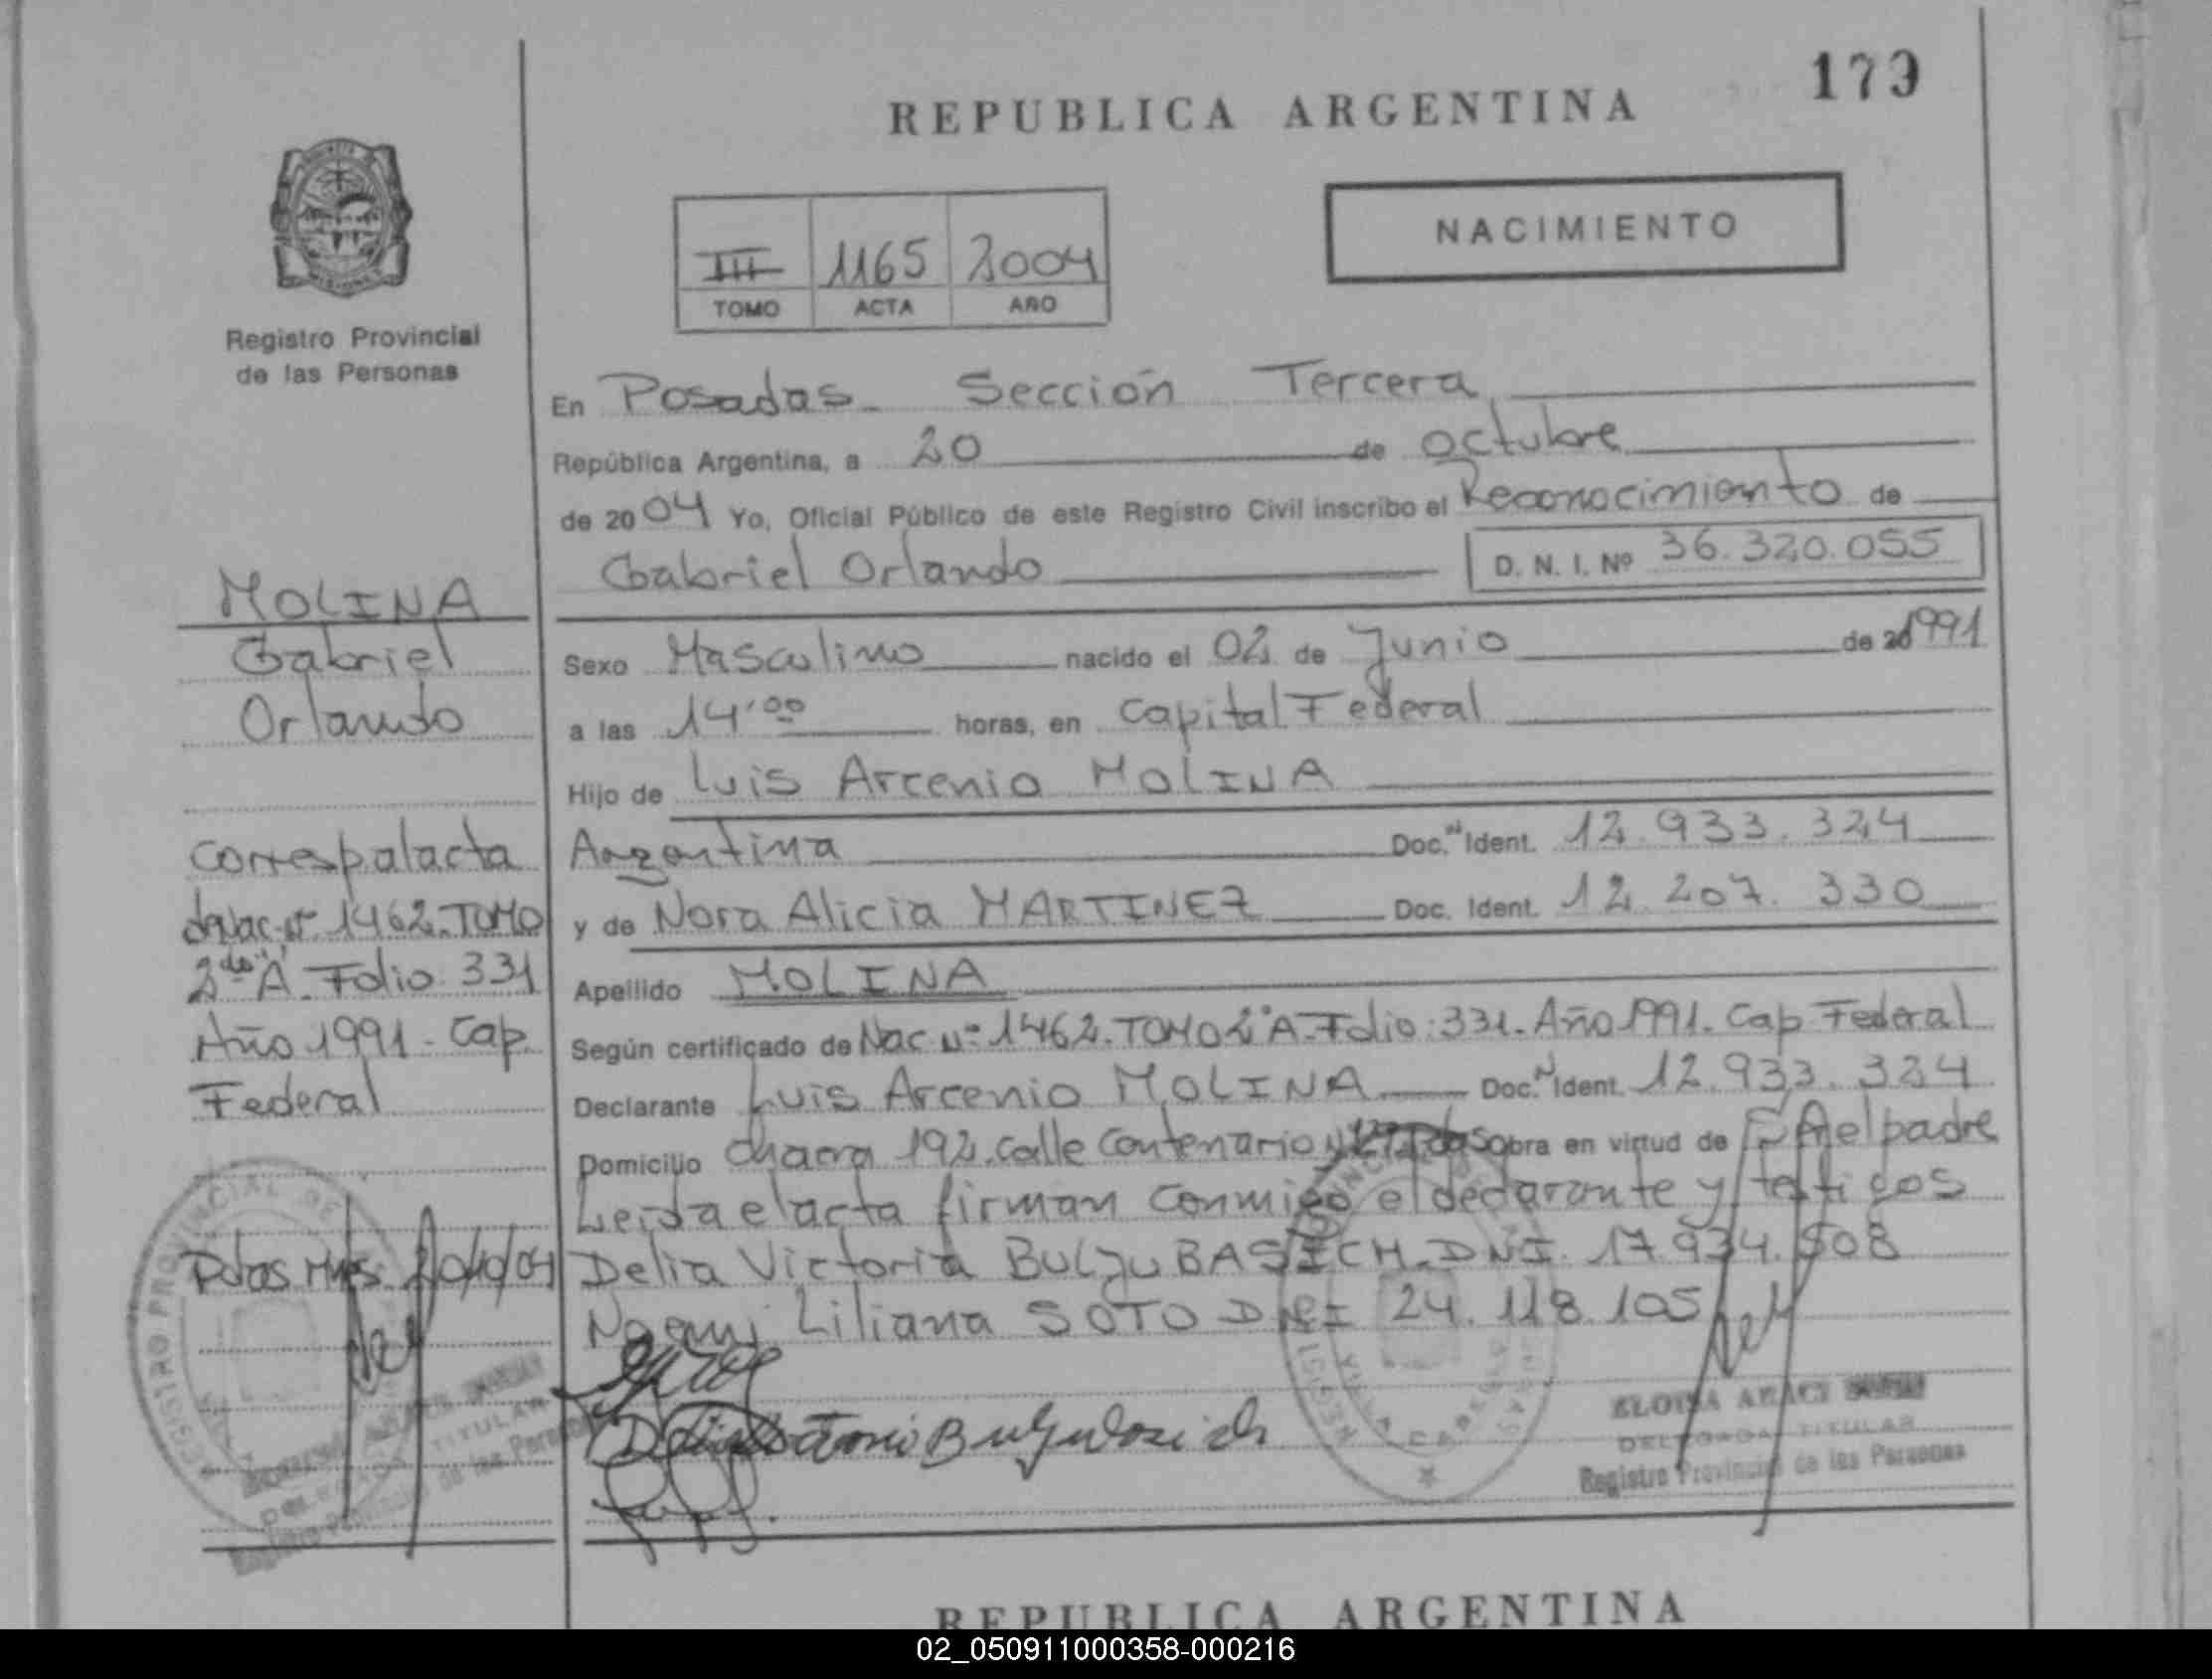 179
REPUBLICA ARGENTINA
III 1165 2004
TOMO ACTA AÑO
NACIMIENTO
Registro Provincial
de las Personas
En Posadas - Sección Tercera
República Argentina, a 20 de octubre
de 2004 Yo, Oficial Público de este Registro Civil inscribo el Reconocimiento de
Gabriel Orlando D. N. I. Nº 36.320.055
Sexo Masculino nacido el 02 de Junio de 1991
a las 14'00 horas, en Capital Federal
Hijo de Luis Arcenio MOLINA
Argentina Doc. Ident. 12.933.324
y de Nora Alicia MARTINEZ Doc. Ident. 12.207.330
Apellido MOLINA
Según certificado de Nac Nº 1462. TOMO 2º A. Folio: 331. Año 1991. Cap Federal
Declarante Luis Arcenio MOLINA Doc. Ident. 12.933.324
Domicilio Chacra 192. Calle Centenario y obra en virtud de el padre
Leida el acta firman conmigo el declarante y testigos
Delia Victoria DNI. 17.934.508
Noemi Liliana SOTO DNI 24.118.105
MOLINA
Gabriel
Orlando
Corresp al acta
de Nac. Nº 1462. TOMO
2do "A". Folio 331
Año 1991 - Cap.
Federal
Pdas Mnes. 20/10/04
REGISTRO PROVINCIAL DE
DELEGADA TITULAR
Registro Provincial de las Personas
DELEGADA TITULAR
Registro Provincial de las Personas
REPUBLICA ARGENTINA
02_050911000358-000216